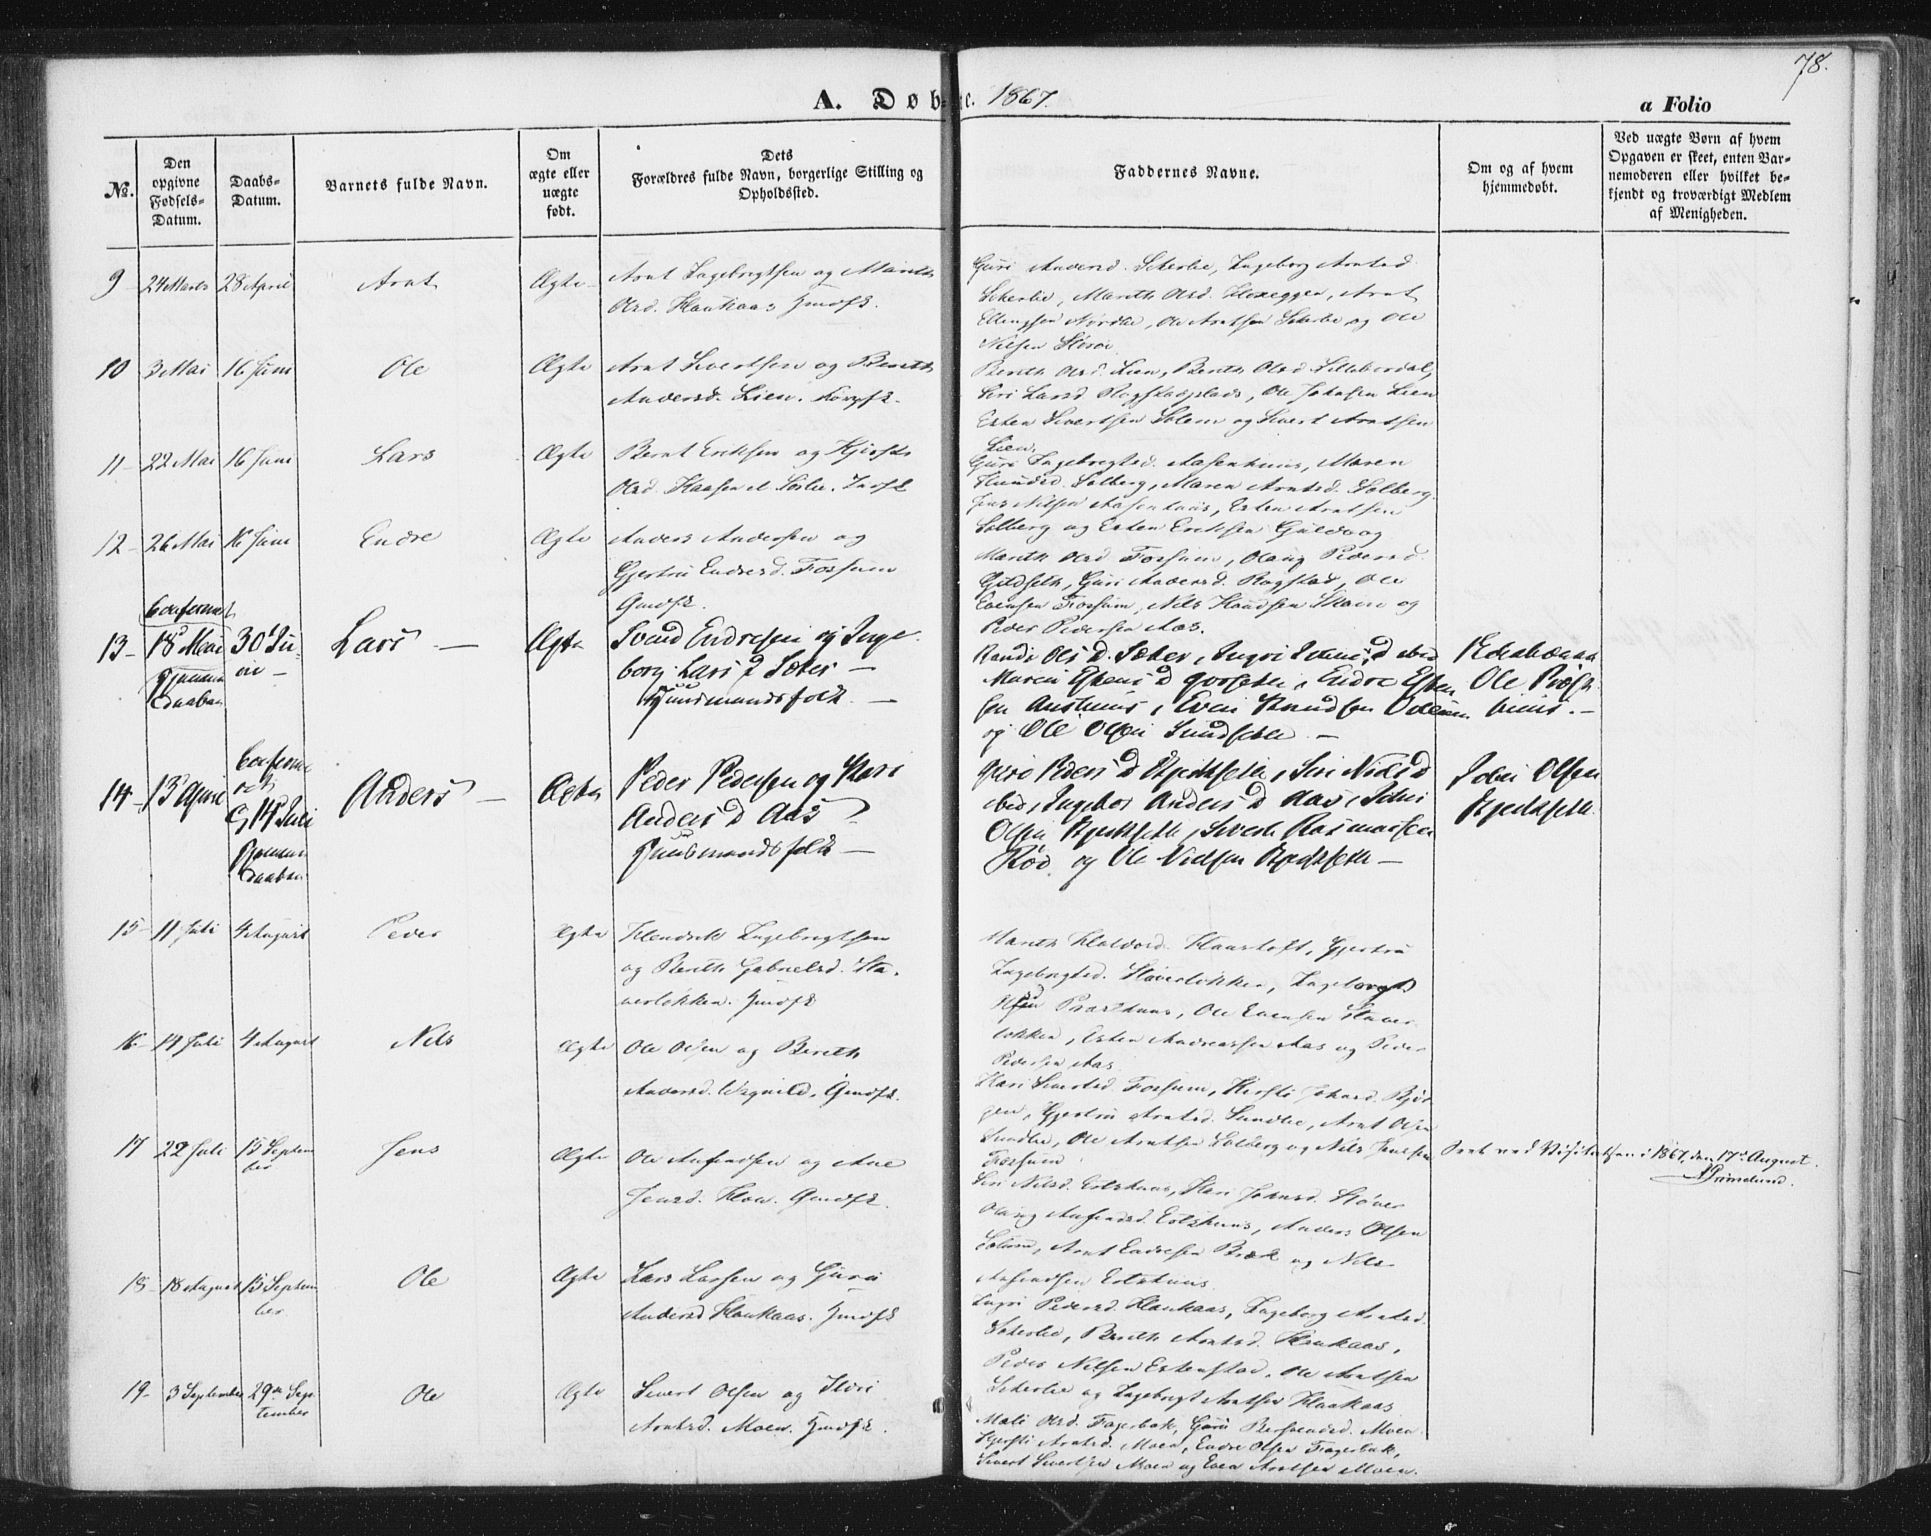 78.
A. Døbte. 1867.
a Folio
No.
Den opgivne Fødsels-Datum.
Daabs-Datum.
Barnets fulde Navn.
Om ægte eller uægte født.
Dets Forældres fulde Navn, borgerlige Stilling og Opholdssted.
Faddernes Navne.
Om og af hvem hjemmedøbt.
Ved uægte Børn af hvem Opgaven er skeet, enten Barnemoderen eller hvilket bekjendt og troværdigt Medlem af Menigheden.
9 24 Marts 28 April Arnt Ægte Arnt Ingebrigtsen og Marith
Olsd. Haukaas Gmdfk.
Guri Andersd. Sæterlie, Ingeborg Arntsd.
Sæterlie, Marith Olsd. Floxeggen, Arnt
Ellingsen Nordlie, Ole Arntsen Sæterlie og Ole
Nilsen Størøi
10 3 Mai 16 Juni Ole Ægte Arnt Sivertsen og Berith
Andersd. Lien.
Berith Olsd. Lien, Berith Olsd. Lilleberdal,
Siri Larsd. Rogstadplads, Ole Johnsen Lien
Esten Sivertsen Solem og Sivert Arntsen
Lien.
11 22 Mai 16 Juni Lars Ægte Bernt Eriksen og Kjersti
Olsd. Haasen
Guri Ingebrigtsd. Aasenhuus, Maren
Solberg, Maren Arntsd. Solberg
Jens Nilsen Aasenhuus, Esten Arntsen
Solberg og Esten Eriksen Guldvog
12 26 Mai 16 Juni Endre Ægte Anders Andersen og
Gjertru Endresd. Fossum
Gmdfk.
Marith Olsd. Fossum, Olaug Pedersd.
Guldseth, Guri Andersd. Rogstad, Ole
Evensen Fossum, Nils Knudsen Moen og
Peder Pedersen Aas.
13 18 Mai 30 Juni Lars Ægte Svend Endresen og Inge
borg Lars D Sæter
Huusmandsfolk.
Randi Ols D. Sæter, Ingri Svens D ibd
Maren Estens D , Endre Esten
sen Austhuus, Even Knudsen
og Ole Olsen Sundsetli
Ole Præst
huus.
14 13 April 14 Juli Anders Ægte Peder Pedersen og Kari
Anders D Aas
Huusmandsfolk
Guro Peders D Kjeldsetli, Siri Niels D
ibd, Ingebor Anders D Aas, John
Olsen Kjeldsetli, Siverd Rasmussen
Rød og Ole Nielsen Kjeldsetli
John Olsen
Kjeldsetli
15 11 Juli 4 August Peder Ægte Hendrik Ingebrigtsen
og Berith Gabrielsd. Sta-
verløkken. Gmdfk
Marith Halvord. Haarstoft, Gjertru
Ingebrigtsd. Staverløkken, Ingeborg
Præsthuus, Ole Evensen Staver
løkken, Esten Andreassen Aas og Peder
Pedersen Aas
16 14 Juli 4 August Nils Ægte Ole Olsen og Berith
Andersd. Vognild, Gmdfk.
Kari Sivertsd. Fossum, Kjersti Johnsd. Bjør
gen, Gjertru Arntsd. Sundlie, Arnt Olsen
Sundlie, Ole Arntsen Solberg og Nils Jensen
Fossum
17 22 Juli 15 Septem
ber Jens Ægte Ole Amundsen og Ane
Jensd. Gmdfk.
Siri Nilsd. Estzhuus, Kari Johnsd. Støver
Olaug Amundsd. Estzhuus, Anders Olsen
Solem, Arnt Endresen Bræk og Nils
Amundsen Estzhuus
Seet ved Visitatsen i 1867, den 17de August.
Grimelund.
18 18 August 15 Septem
ber. Ole Ægte Lars Larsen og Guru
Andersd Haukaas. Gmdfk
Ingri Pedersd. Haukaas, Ingeborg Arntsd.
Sæterlie, Berith Arntsd. Haukaas,
Peder Nilsen Estenstad, Ole Arntsen
Sæterlie og Ingebrigt Arntsen Haukaas
19 3 September 29de Sep-
tember Ole Ægte Sivert Olsen og Kari
Arntsd. Moen. Gmdfk.
Mali Olsd. Fagerbæk, Guru Moen
Kjersti Arntsd. Moen, Endre Olsen Fagerbæk,
Sivert Sivertsen Moen og Even Arntsen Moen.